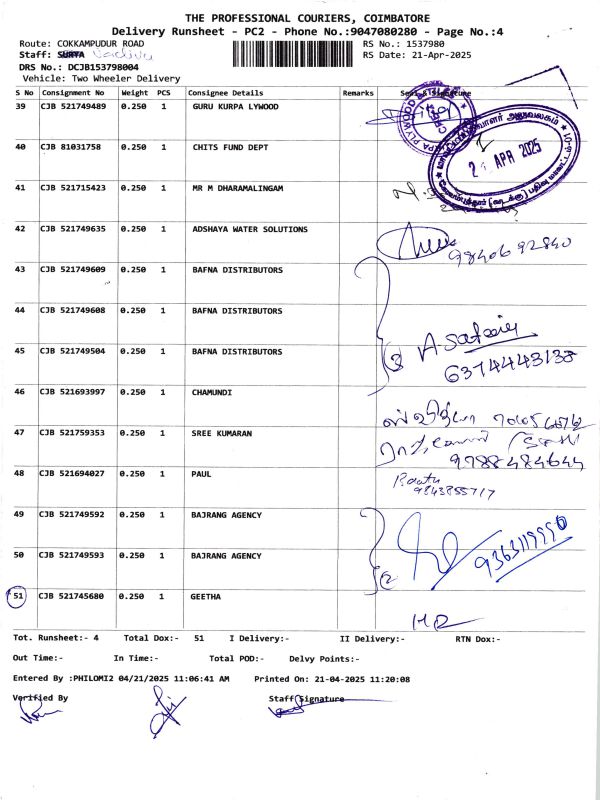 THE PROFESSIONAL COURIERS, COIMBATORE
Delivery Runsheet - PC2 - Phone No.:9047080280 - Page No.:4
Route: COKKAMPUDUR ROAD RS No.: 1537980
Staff: SURYA RS Date: 21-Apr-2025
DRS No.: DCJB153798004
Vehicle: Two Wheeler Delivery
S No Consignment No Weight PCS Consignee Details Remarks Seal & Signature
39 CJB 521749489 0.250 1 GURU KURPA LYWOOD
40 CJB 81031758 0.250 1 CHITS FUND DEPT
APR 2025
41 CJB 521715423 0.250 1 MR M DHARAMALINGAM
42 CJB 521749635 0.250 1 ADSHAYA WATER SOLUTIONS
9840692840
43 CJB 521749609 0.250 1 BAFNA DISTRIBUTORS
44 CJB 521749608 0.250 1 BAFNA DISTRIBUTORS
45 CJB 521749504 0.250 1 BAFNA DISTRIBUTORS
3
6374443138
46 CJB 521693997 0.250 1 CHAMUNDI
47 CJB 521759353 0.250 1 SREE KUMARAN
9788484644
48 CJB 521694027 0.250 1 PAUL
9843855717
49 CJB 521749592 0.250 1 BAJRANG AGENCY
50 CJB 521749593 0.250 1 BAJRANG AGENCY
2
9363119990
51 CJB 521745680 0.250 1 GEETHA
Tot. Runsheet:- 4 Total Dox:- 51 I Delivery:- II Delivery:- RTN Dox:-
Out Time:- In Time:- Total POD:- Delvy Points:-
Entered By :PHILOMI2 04/21/2025 11:06:41 AM Printed On: 21-04-2025 11:20:08
Verified By Staff Signature